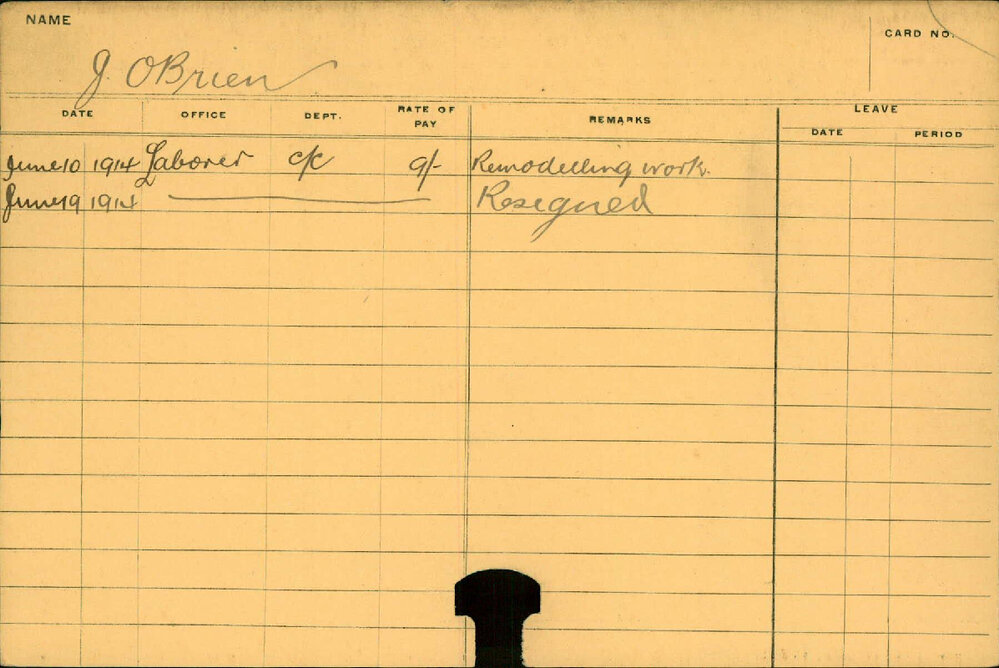 NAME
CARD NO.
J. OBrien
DATE OFFICE DEPT. RATE OF PAY REMARKS LEAVE
DATE PERIOD
June 10 1914 Laborer c/c 9/- Remodelling work.
June 19 1914 Resigned